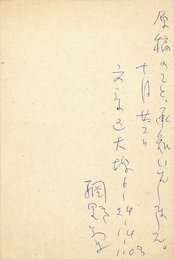 原稿のこと、承知いたしました。
十月廿二日
文京区大塚6-24-14-103